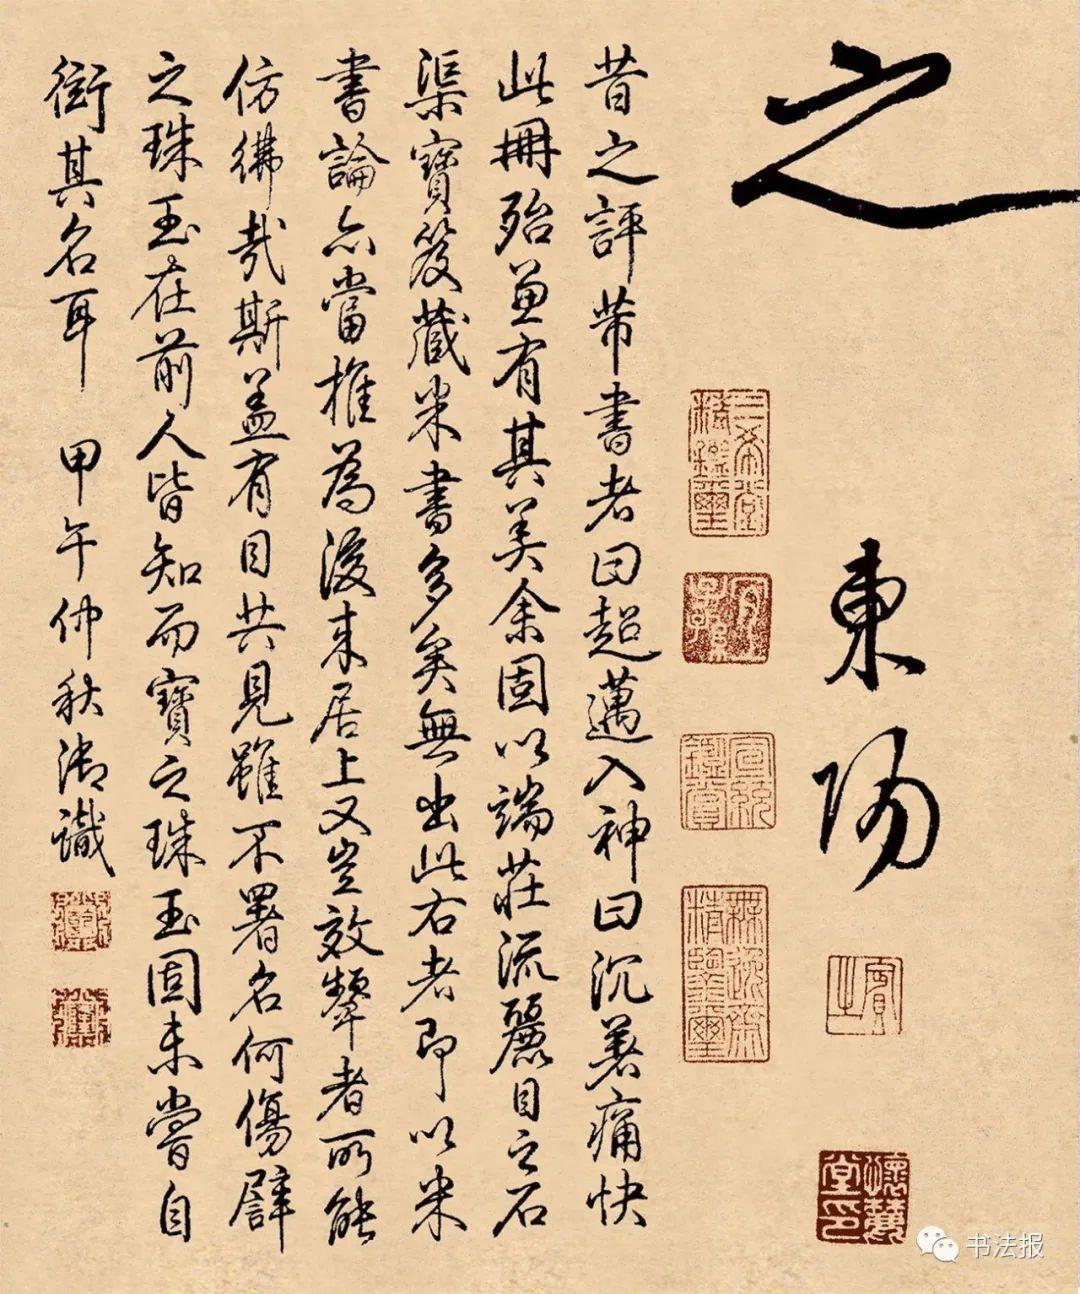 之
東陽
三希堂精鑑璽
宜子孫
宣統鑑賞
無逸齋精鑑璽
昔之評芾書者曰超邁入神曰沉著痛快
此冊殆兼有其美余固以端莊流麗目之石
渠寶笈藏米書多矣無出此右者即以米
書論亦當推為後來居上又豈效顰者所能
仿彿哉斯盖有目共見雖不署名何傷譬
之珠玉在前人皆知而寶之珠玉固未嘗自
衒其名耳 甲午仲秋御識
书法报